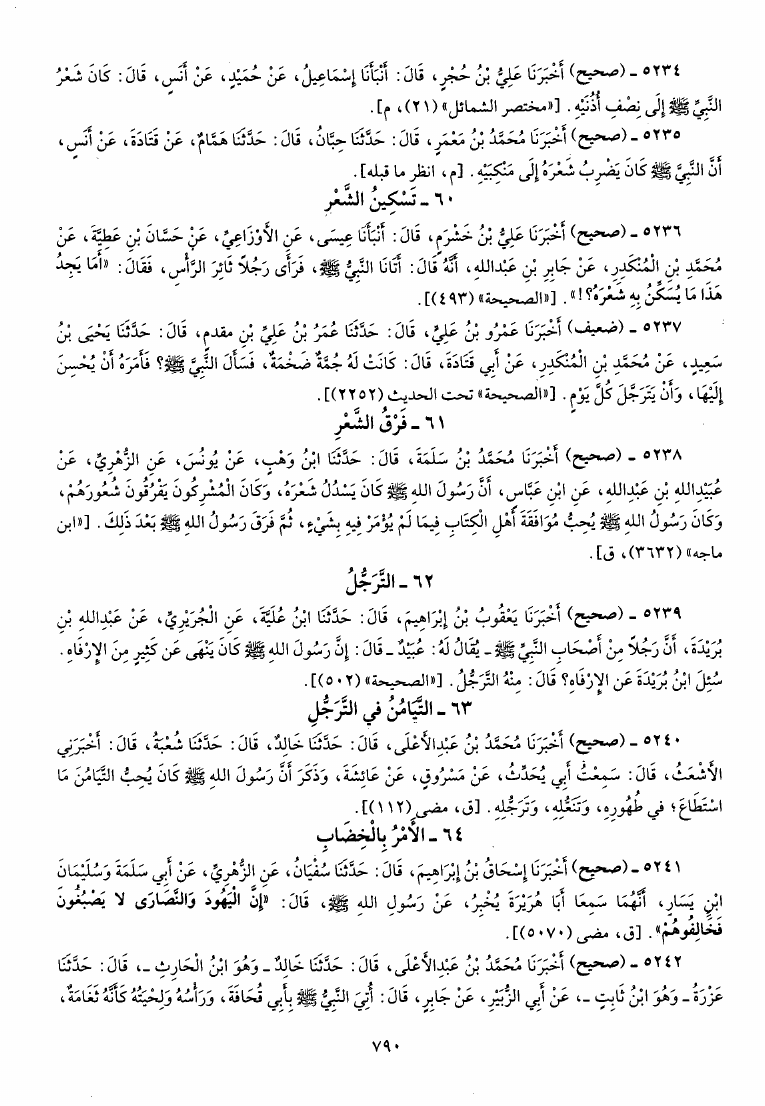 ٥٢٣٤ ـ (صحيح) أَخْبَرَنَا عَلِيُّ بْنُ حُجْرٍ، قَالَ: أَنْبَأَنَا إِسْمَاعِيلُ، عَنْ حُمَيْدٍ، عَنْ أَنَسٍ، قَالَ: كَانَ شَعْرُ
النَّبِيِّ ﷺ إِلَى نِصْفِ أُذُنَيْهِ. [«مختصر الشمائل» (٢١)، م].
٥٢٣٥ ـ (صحيح) أَخْبَرَنَا مُحَمَّدُ بْنُ مَعْمَرٍ، قَالَ: حَدَّثَنَا حِبَّانُ، قَالَ: حَدَّثَنَا هَمَّامٌ، عَنْ قَتَادَةَ، عَنْ أَنَسٍ،
أَنَّ النَّبِيَّ ﷺ كَانَ يَضْرِبُ شَعْرَهُ إِلَى مَنْكِبَيْهِ. [م، انظر ما قبله].
٦٠ ـ تَسْكِينُ الشَّعْرِ
٥٢٣٦ ـ (صحيح) أَخْبَرَنَا عَلِيُّ بْنُ خَشْرَمٍ، قَالَ: أَنْبَأَنَا عِيسَى، عَنِ الأَوْزَاعِيِّ، عَنْ حَسَّانَ بْنِ عَطِيَّةَ، عَنْ
مُحَمَّدِ بْنِ الْمُنْكَدِرِ، عَنْ جَابِرِ بْنِ عَبْدِاللهِ، أَنَّهُ قَالَ: أَتَانَا النَّبِيُّ ﷺ، فَرَأَى رَجُلاً ثَائِرَ الرَّأْسِ، فَقَالَ: «أَمَا يَجِدُ
هَذَا مَا يُسَكِّنُ بِهِ شَعْرَهُ؟!». [«الصحيحة» (٤٩٣)].
٥٢٣٧ ـ (ضعيف) أَخْبَرَنَا عَمْرُو بْنُ عَلِيٍّ، قَالَ: حَدَّثَنَا عُمَرُ بْنُ عَلِيِّ بْنِ مقدم، قَالَ: حَدَّثَنَا يَحْيَى بْنُ
سَعِيدٍ، عَنْ مُحَمَّدِ بْنِ الْمُنْكَدِرِ، عَنْ أَبِي قَتَادَةَ، قَالَ: كَانَتْ لَهُ جُمَّةٌ ضَخْمَةٌ، فَسَأَلَ النَّبِيَّ ﷺ؟ فَأَمَرَهُ أَنْ يُحْسِنَ
إِلَيْهَا، وَأَنْ يَتَرَجَّلَ كُلَّ يَوْمٍ. [«الصحيحة» تحت الحديث (٢٢٥٢)].
٦١ ـ فَرْقُ الشَّعْرِ
٥٢٣٨ ـ (صحيح) أَخْبَرَنَا مُحَمَّدُ بْنُ سَلَمَةَ، قَالَ: حَدَّثَنَا ابْنُ وَهْبٍ، عَنْ يُونُسَ، عَنِ الزُّهْرِيِّ، عَنْ
عُبَيْدِاللهِ بْنِ عَبْدِاللهِ، عَنِ ابْنِ عَبَّاسٍ، أَنَّ رَسُولَ اللهِ ﷺ كَانَ يَسْدُلُ شَعْرَهُ، وَكَانَ الْمُشْرِكُونَ يَفْرُقُونَ شُعُورَهُمْ،
وَكَانَ رَسُولُ اللهِ ﷺ يُحِبُّ مُوَافَقَةَ أَهْلِ الْكِتَابِ فِيمَا لَمْ يُؤْمَرْ فِيهِ بِشَيْءٍ، ثُمَّ فَرَقَ رَسُولُ اللهِ ﷺ بَعْدَ ذَلِكَ. [«ابن
ماجه» (٣٦٣٢)، ق].
٦٢ ـ التَّرَجُّلُ
٥٢٣٩ ـ (صحيح) أَخْبَرَنَا يَعْقُوبُ بْنُ إِبْرَاهِيمَ، قَالَ: حَدَّثَنَا ابْنُ عُلَيَّةَ، عَنِ الْجُرَيْرِيِّ، عَنْ عَبْدِاللهِ بْنِ
بُرَيْدَةَ، أَنَّ رَجُلاً مِنْ أَصْحَابِ النَّبِيِّ ﷺ ـ يُقَالُ لَهُ: عُبَيْدٌ ـ قَالَ: إِنَّ رَسُولَ اللهِ ﷺ كَانَ يَنْهَى عَن كَثِيرٍ مِنَ الإِرْفَاهِ.
سُئِلَ ابْنُ بُرَيْدَةَ عَنِ الإِرْفَاهِ؟ قَالَ: مِنْهُ التَّرَجُّلُ. [«الصحيحة» (٥٠٢)].
٦٣ ـ التَّيَامُنُ فِي التَّرَجُّلِ
٥٢٤٠ ـ (صحيح) أَخْبَرَنَا مُحَمَّدُ بْنُ عَبْدِالأَعْلَى، قَالَ: حَدَّثَنَا خَالِدٌ، قَالَ: حَدَّثَنَا شُعْبَةُ، قَالَ: أَخْبَرَنِي
الأَشْعَثُ، قَالَ: سَمِعْتُ أَبِي يُحَدِّثُ، عَنْ مَسْرُوقٍ، عَنْ عَائِشَةَ، وَذَكَرَ أَنَّ رَسُولَ اللهِ ﷺ كَانَ يُحِبُّ التَّيَامُنَ مَا
اسْتَطَاعَ؛ فِي طُهُورِهِ، وَتَنَعُّلِهِ، وَتَرَجُّلِهِ. [ق، مضى (١١٢)].
٦٤ ـ الأَمْرُ بِالْخِضَابِ
٥٢٤١ ـ (صحيح) أَخْبَرَنَا إِسْحَاقُ بْنُ إِبْرَاهِيمَ، قَالَ: حَدَّثَنَا سُفْيَانُ، عَنِ الزُّهْرِيِّ، عَنْ أَبِي سَلَمَةَ وَسُلَيْمَانَ
ابْنِ يَسَارٍ، أَنَّهُمَا سَمِعَا أَبَا هُرَيْرَةَ يُخْبِرُ، عَنْ رَسُولِ اللهِ ﷺ، قَالَ: «إِنَّ الْيَهُودَ وَالنَّصَارَى لا يَصْبُغُونَ
فَخَالِفُوهُمْ». [ق، مضى (٥٠٧٠)].
٥٢٤٢ ـ (صحيح) أَخْبَرَنَا مُحَمَّدُ بْنُ عَبْدِالأَعْلَى، قَالَ: حَدَّثَنَا خَالِدٌ ـ وَهُوَ ابْنُ الْحَارِثِ ـ، قَالَ: حَدَّثَنَا
عَزْرَةُ ـ وَهُوَ ابْنُ ثَابِتٍ ـ، عَنْ أَبِي الزُّبَيْرِ، عَنْ جَابِرٍ، قَالَ: أُتِيَ النَّبِيُّ ﷺ بِأَبِي قُحَافَةَ، وَرَأْسُهُ وَلِحْيَتُهُ كَأَنَّهُ ثَغَامَةٌ،
٧٩٠